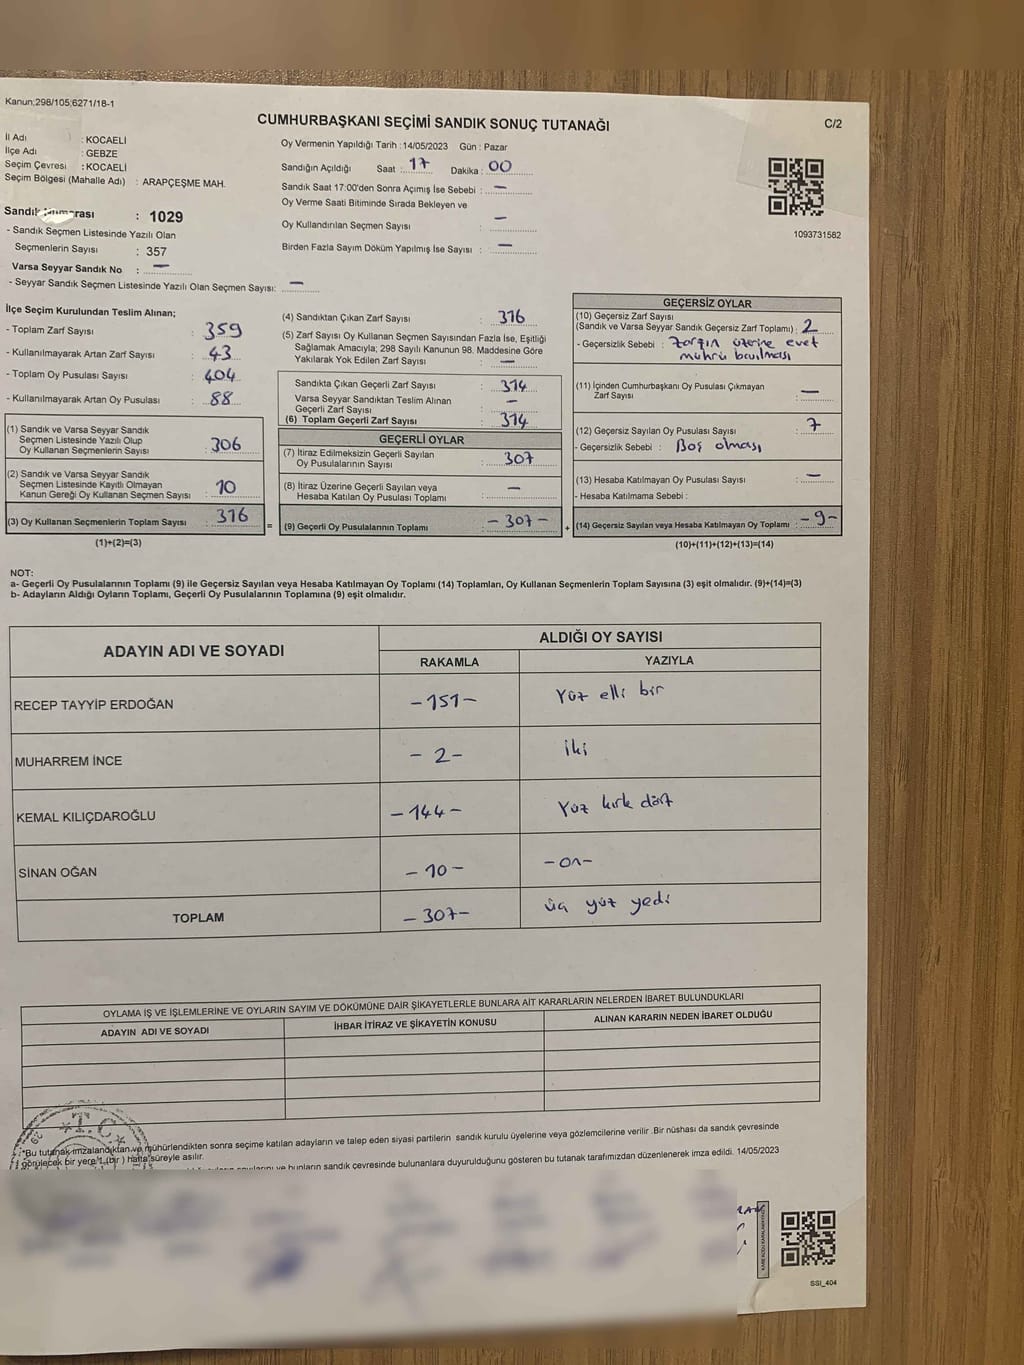 Kanun;298/105;6271/18-1
CUMHURBAŞKANI SEÇİMİ SANDIK SONUÇ TUTANAĞI
C/2
İl Adı : KOCAELİ
İlçe Adı : GEBZE
Seçim Çevresi : KOCAELİ
Seçim Bölgesi (Mahalle Adı) : ARAPÇEŞME MAH.
Oy Vermenin Yapıldığı Tarih : 14/05/2023 Gün : Pazar
Sandığın Açıldığı Saat : 17 Dakika : 00
Sandık Saat 17:00'den Sonra Açımış İse Sebebi : —
Oy Verme Saati Bitiminde Sırada Bekleyen ve
Oy Kullandırılan Seçmen Sayısı : —
Birden Fazla Sayım Döküm Yapılmış İse Sayısı : —
1093731582
Sandık : 1029
- Sandık Seçmen Listesinde Yazılı Olan
Seçmenlerin Sayısı : 357
Varsa Seyyar Sandık No : —
- Seyyar Sandık Seçmen Listesinde Yazılı Olan Seçmen Sayısı: —
İlçe Seçim Kurulundan Teslim Alınan;
- Toplam Zarf Sayısı : 359
- Kullanılmayarak Artan Zarf Sayısı : 43
- Toplam Oy Pusulası Sayısı : 404
- Kullanılmayarak Artan Oy Pusulası : 88
(1) Sandık ve Varsa Seyyar Sandık
Seçmen Listesinde Yazılı Olup
Oy Kullanan Seçmenlerin Sayısı : 306
(2) Sandık ve Varsa Seyyar Sandık
Seçmen Listesinde Kayıtlı Olmayan
Kanun Gereği Oy Kullanan Seçmen Sayısı : 10
(3) Oy Kullanan Seçmenlerin Toplam Sayısı : 316
(1)+(2)=(3)
=
(4) Sandıktan Çıkan Zarf Sayısı : 316
(5) Zarf Sayısı Oy Kullanan Seçmen Sayısından Fazla İse, Eşitliği
Sağlamak Amacıyla; 298 Sayılı Kanunun 98. Maddesine Göre
Yakılarak Yok Edilen Zarf Sayısı : —
Sandıkta Çıkan Geçerli Zarf Sayısı : 314
Varsa Seyyar Sandıktan Teslim Alınan
Geçerli Zarf Sayısı : —
(6) Toplam Geçerli Zarf Sayısı : 314
GEÇERLİ OYLAR
(7) İtiraz Edilmeksizin Geçerli Sayılan
Oy Pusulalarının Sayısı : 307
(8) İtiraz Üzerine Geçerli Sayılan veya
Hesaba Katılan Oy Pusulası Toplamı : —
(9) Geçerli Oy Pusulalarının Toplamı : - 307 -
+
GEÇERSİZ OYLAR
(10) Geçersiz Zarf Sayısı
(Sandık ve Varsa Seyyar Sandık Geçersiz Zarf Toplamı) : 2
- Geçersizlik Sebebi : Zarfın üzerine evet
mührü basılması
(11) İçinden Cumhurbaşkanı Oy Pusulası Çıkmayan
Zarf Sayısı : —
(12) Geçersiz Sayılan Oy Pusulası Sayısı : 7
- Geçersizlik Sebebi : Boş olması
(13) Hesaba Katılmayan Oy Pusulası Sayısı : —
- Hesaba Katılmama Sebebi :
(14) Geçersiz Sayılan veya Hesaba Katılmayan Oy Toplamı : - 9 -
(10)+(11)+(12)+(13)=(14)
NOT:
a- Geçerli Oy Pusulalarının Toplamı (9) ile Geçersiz Sayılan veya Hesaba Katılmayan Oy Toplamı (14) Toplamları, Oy Kullanan Seçmenlerin Toplam Sayısına (3) eşit olmalıdır. (9)+(14)=(3)
b- Adayların Aldığı Oyların Toplamı, Geçerli Oy Pusulalarının Toplamına (9) eşit olmalıdır.
ADAYIN ADI VE SOYADI
ALDIĞI OY SAYISI
RAKAMLA YAZIYLA
RECEP TAYYİP ERDOĞAN -151- Yüz elli bir
MUHARREM İNCE - 2 - iki
KEMAL KILIÇDAROĞLU - 144 - Yüz kırk dört
SİNAN OĞAN - 10 - - on -
TOPLAM - 307 - üç yüz yedi
OYLAMA İŞ VE İŞLEMLERİNE VE OYLARIN SAYIM VE DÖKÜMÜNE DAİR ŞİKAYETLERLE BUNLARA AİT KARARLARIN NELERDEN İBARET BULUNDUKLARI
ADAYIN ADI VE SOYADI İHBAR İTİRAZ VE ŞİKAYETİN KONUSU ALINAN KARARIN NEDEN İBARET OLDUĞU
T.C.
*Bu tutanak imzalandıktan ve mühürlendikten sonra seçime katılan adayların ve talep eden siyasi partilerin sandık kurulu üyelerine veya gözlemcilerine verilir .Bir nüshası da sandık çevresinde
görülecek bir yere 1 (bir ) hafta süreyle asılır.
ve bunların sandık çevresinde bulunanlara duyurulduğunu gösteren bu tutanak tarafımızdan düzenlenerek imza edildi. 14/05/2023
SSI_404